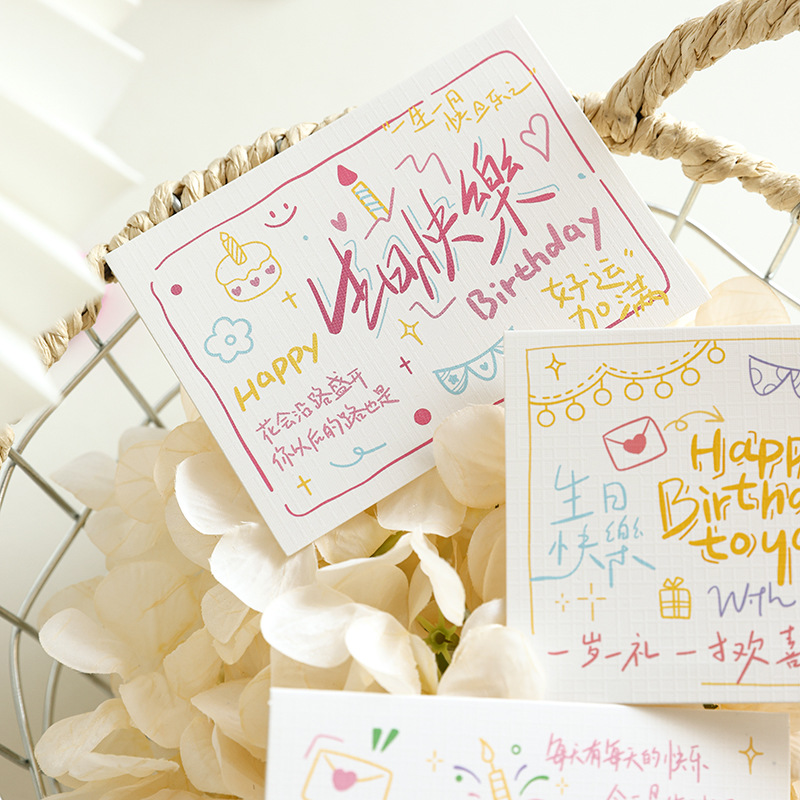 “一生一日
快且乐之”
生日快樂
Birthday
Happy
好运”
加满
花会沿路盛开
你以后的路也是
Happ
Birthda
to yo
生日
快樂
With
一岁一礼 一才欢喜
每天有每天的快乐